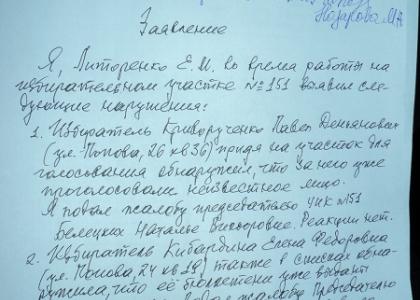 Назарова М.А
Заявление
Я, Литоренко Е.И. во время работы на
избирательном участке №151 выявил сле-
дующие нарушения:
1. Избиратель Криворученко Павел Демьянович
(ул. Попова, 26 кв 36) придя на участок для
голосования обнаружил, что за него уже
проголосовало неизвестное лицо.
Я подал жалобу председателю УИК №151
Белецких Наталье Викторовне. Реакции нет.
2. Избиратель Кибардина Елена Федоровна
(ул. Попова, 24 кв 19) также в списках обна-
ружила, что её бюллетени уже выдают
жалобу Председателю